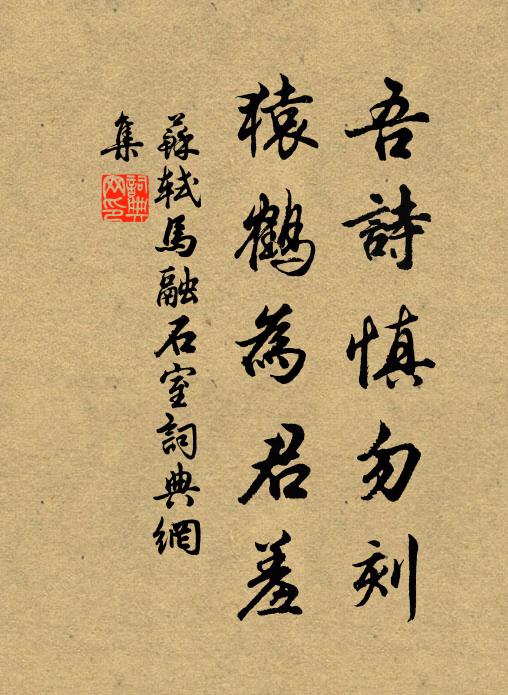 吾詩慎勿刻
猿鶴為君羞
蘇軾馬融石室詞典網
集
詞典